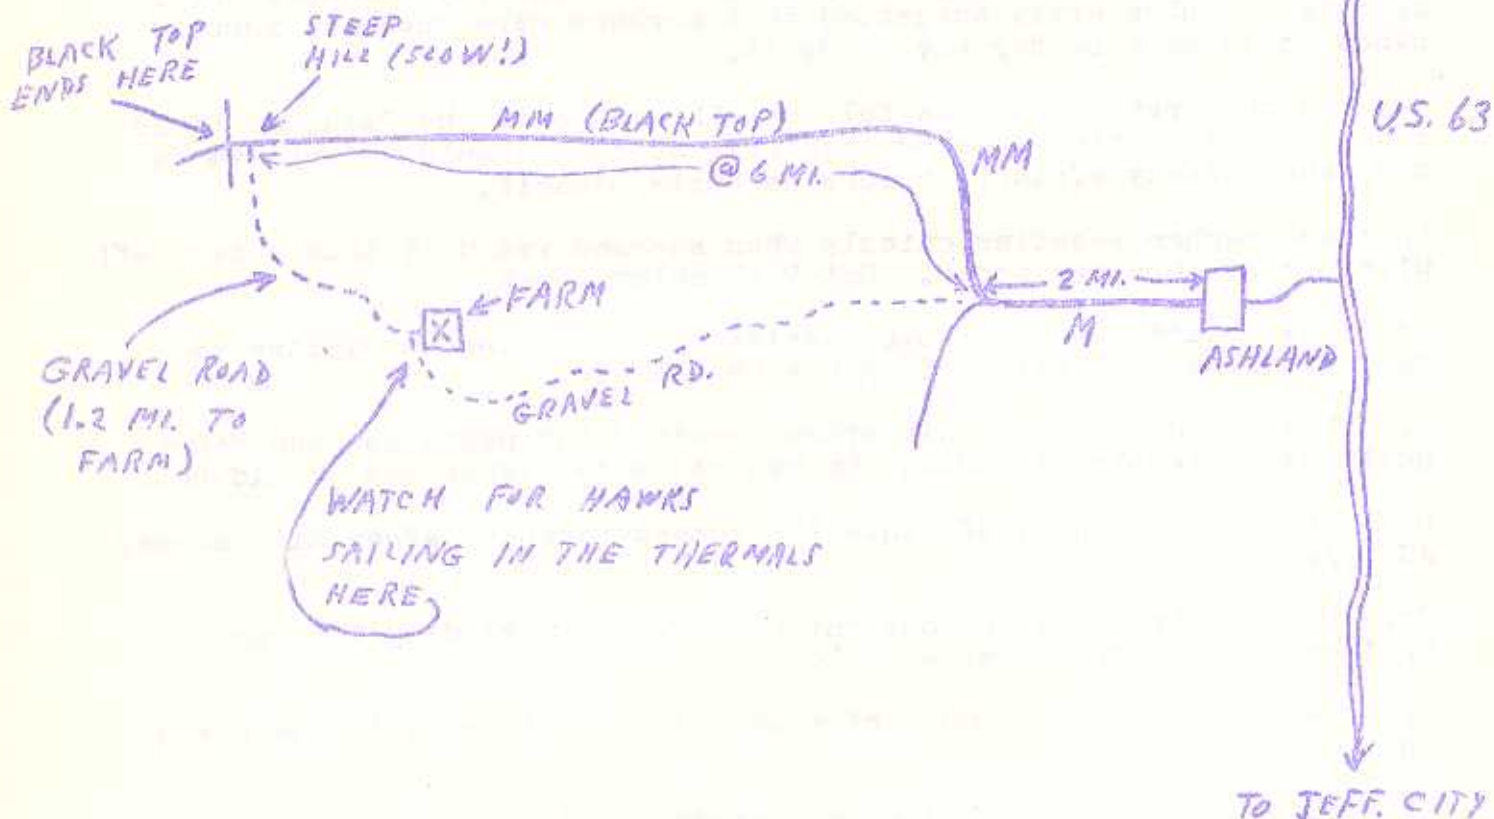 BLACK TOP
ENDS HERE
STEEP
HILL (SLOW!)
MM (BLACK TOP)
@ 6 MI.
MM
U.S. 63
2 MI.
M
ASHLAND
FARM
X
GRAVEL ROAD
(1.2 MI. TO
FARM)
GRAVEL RD.
WATCH FOR HAWKS
SAILING IN THE THERMALS
HERE
TO JEFF. CITY